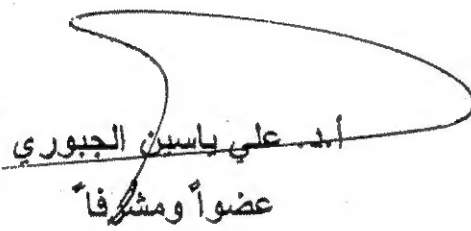 أ.د. علي ياسين الجبوري
عضواً ومشرفاً